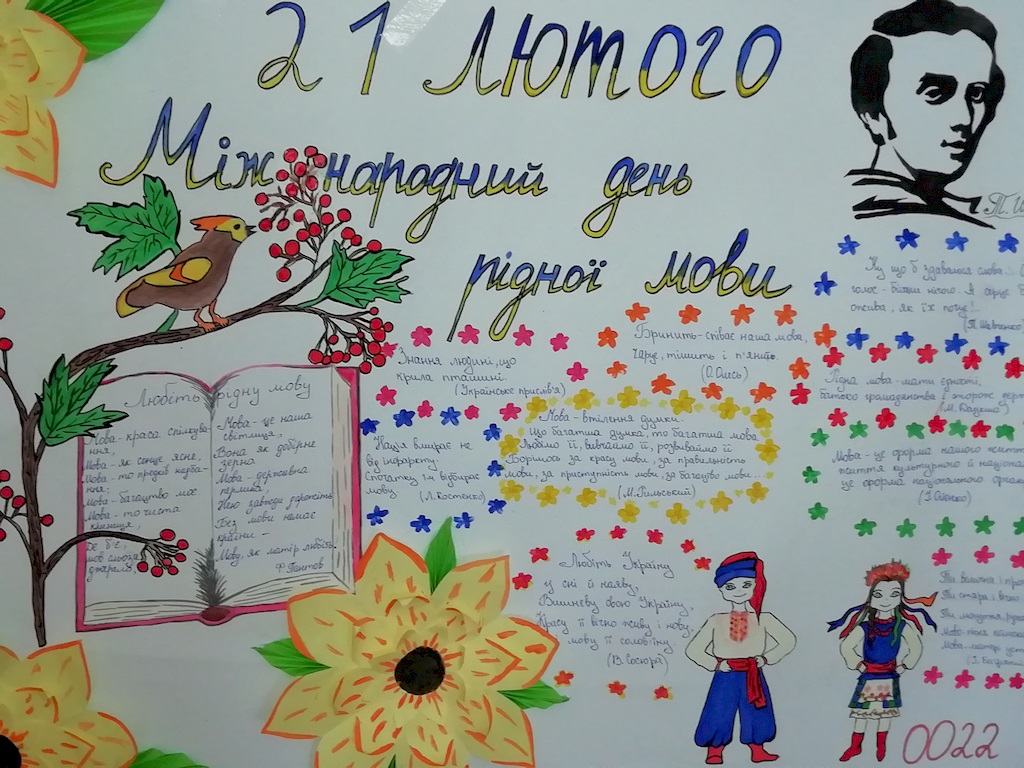 21 Лютого
Міжнародний день
рідної мови
Т. Ш
Ну що б здавалося слова...
голос - більш нічого. А серце б
ожива, як їх почує!
(Т. Шевченко
Бринить-співає наша мова,
Чарує, тішить і п'янить.
(О. Олесь)
Знання людині, що
крила пташині.
(Українське прислів'я)
Рідна мова - мати єдності,
батько громадянства і сторож
(М.
Любіть рідну мову
Мова - краса спілкува-
ння,
Мова - як сонце ясне,
Мова - то предків надба-
ння,
Мова - багатство моє
Мова - то чиста
криниця,
Де б'є,
мов сльоза,
джерело,
Мова - це наша
світлиця,
Вона як добірне
зерно.
Мова - державна
перлина,
Нею завжди дорожіть
Без мови немає
країни -
Мову, як матір любіть.
Ф. Пантов
Нація вмирає не
від інфаркту.
Спочатку їй відбирає
мову (Л. Костенко)
Мова - втілення думки.
Що багатша думка, то багатша мова
Любимо її, вивчаймо її, розвиваймо її
Борімось за красу мови, за правильність
мови, за приступність мови, за багацтво мови...
(М. Рильський)
Мова - це форма нашого життя
життя культурного й націона
це форма національного органі
(І. Огієнко)
Любіть Україну
у сні й наяву,
Вишневу свою Україну,
Красу її вічно живу і нову,
мову її солов'їну
(В. Сосюра)
Ти велична і про
Ти стара і вічно
Ти могутня,
Мова
Мова-матір
(І.
0022